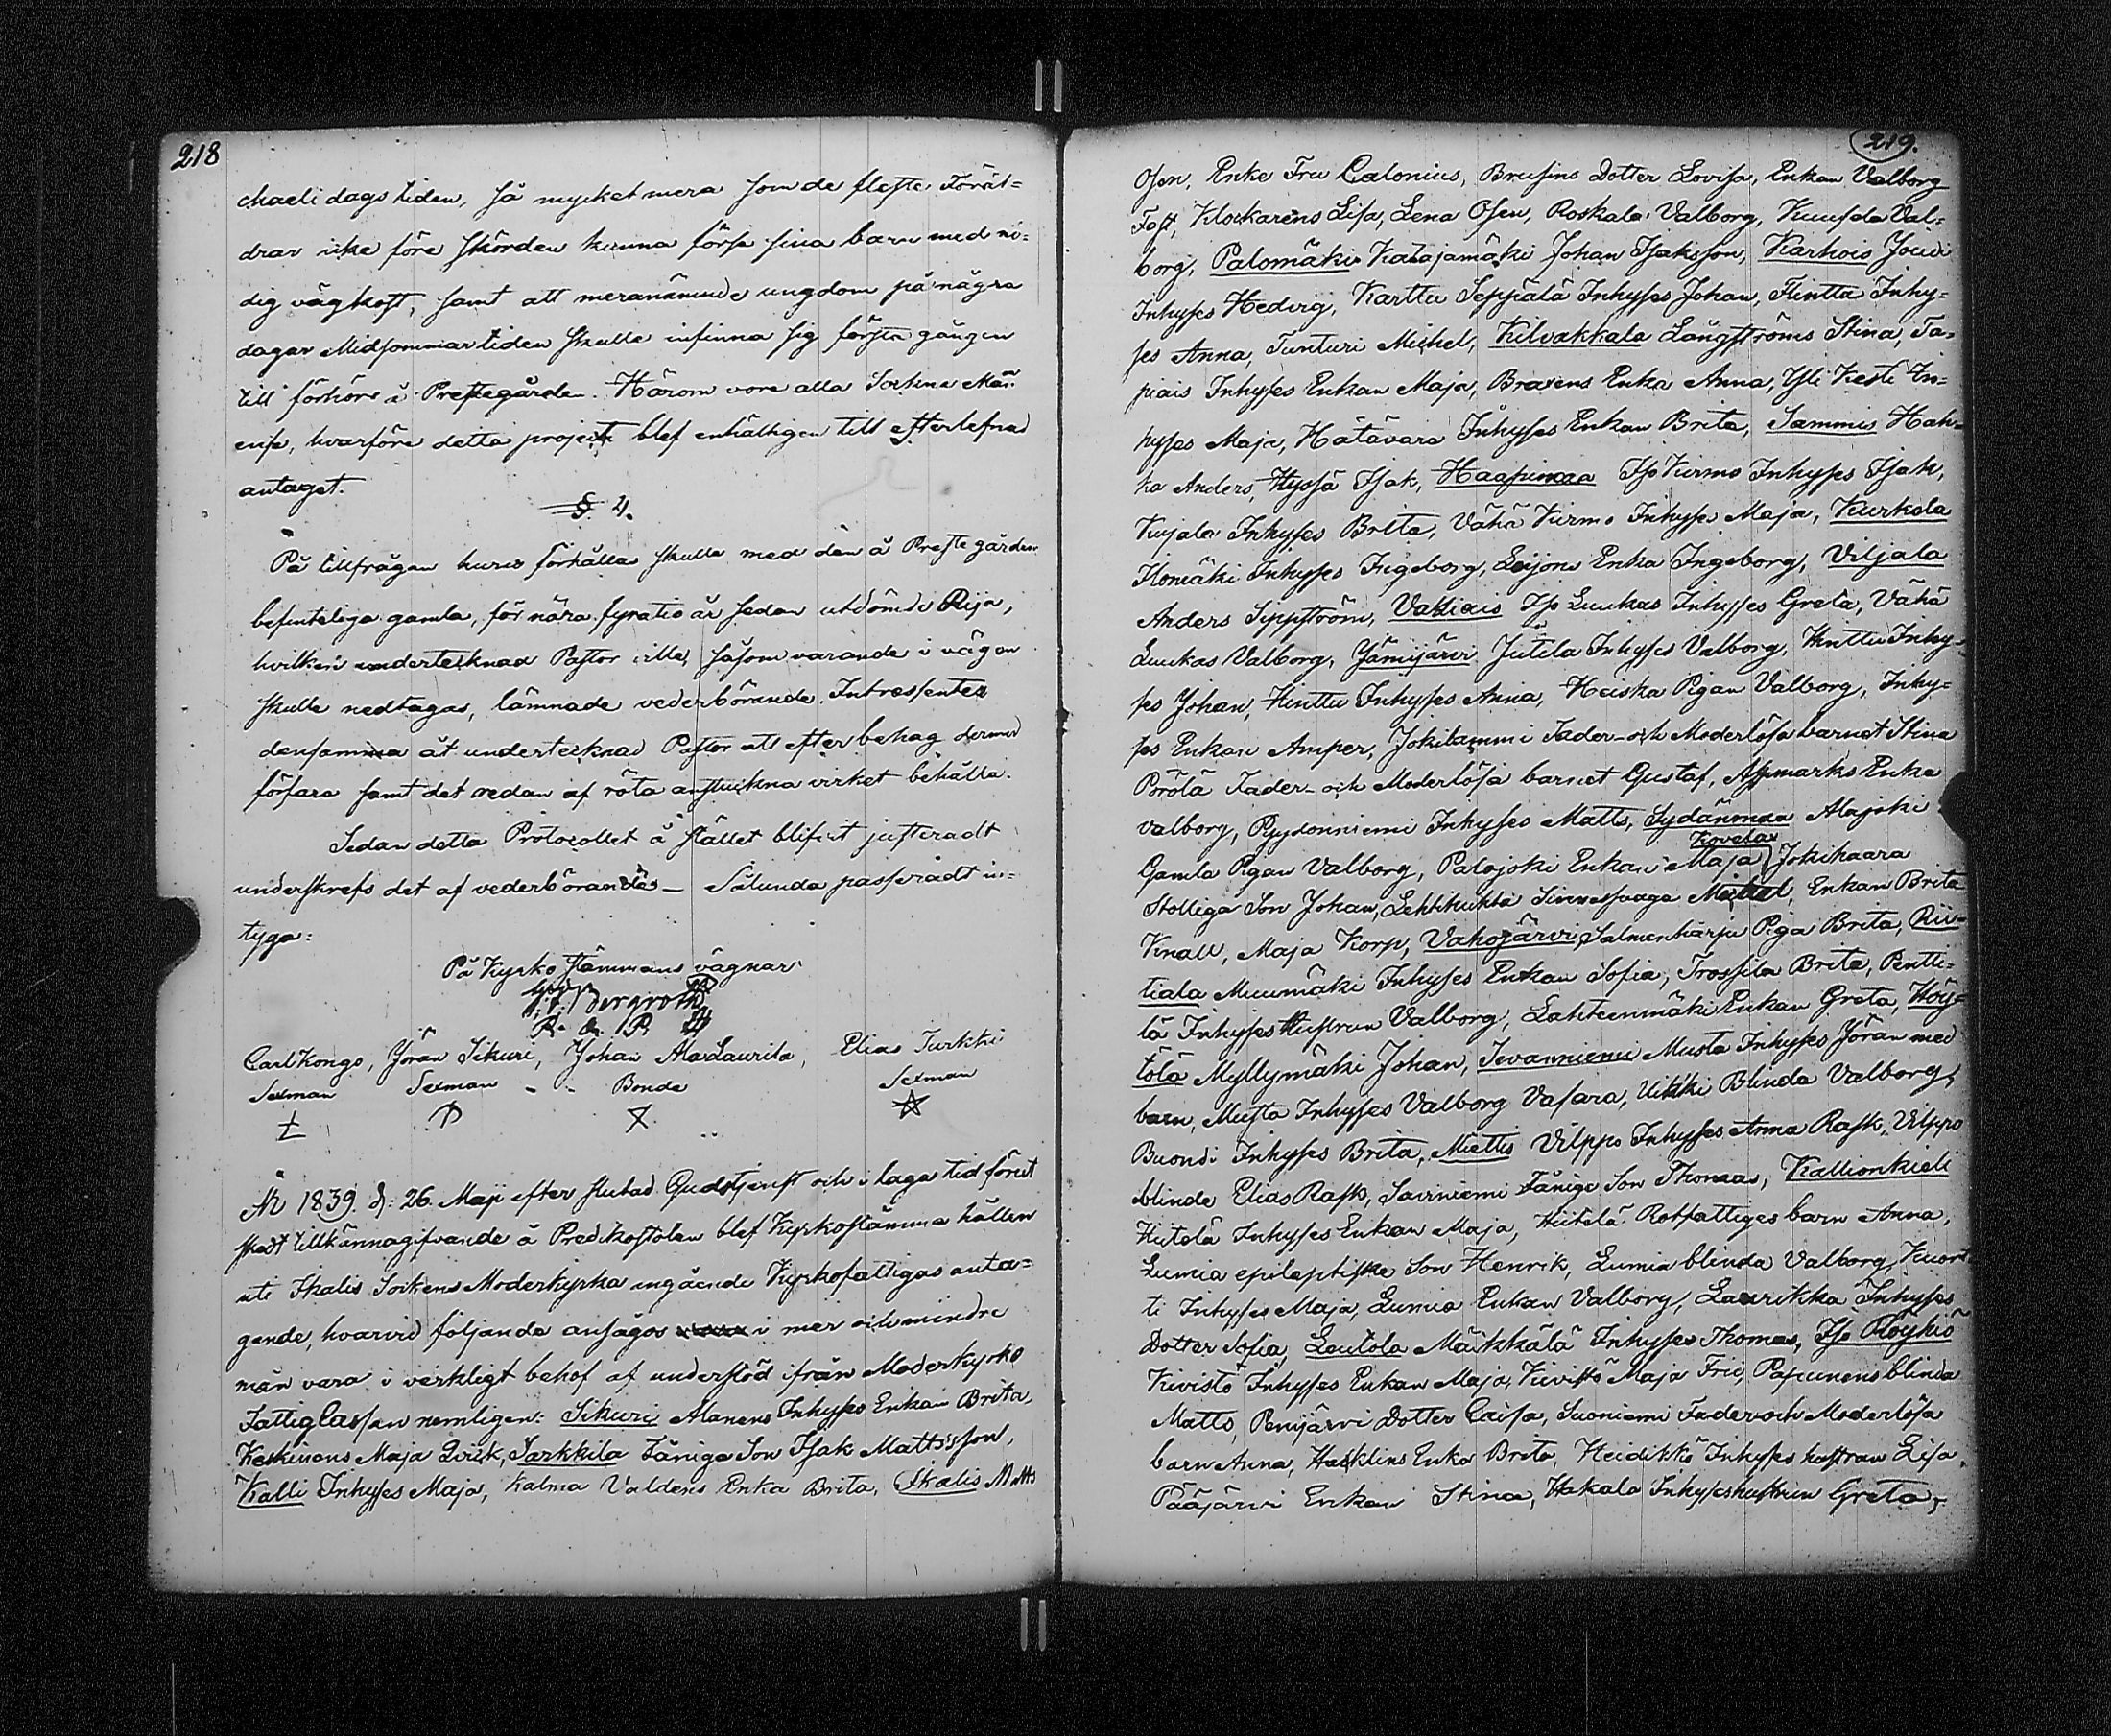 218
chaeli dags tiden, så mycket mera som de fleste Föräl=
drar icke före skörden kunna förse sina barn med nö=
dig vägkost, samt att meranämnde ungdom på några
dagar Midsommartiden skulle infinna sig första gången
till förhöre å Prestegården. Härom voro alla Sockne Män
ense, hvarföre detta project blef enhälligen till efterlefnad
antaget.
§. 4.
På tillfrågan huru förhållas skulle med den å Prestegården
befinteliga gamla, för nära fyratio år sedan utdömde Rija,
hvilken undertecknad Pastor ville, såsom varande i vägen
skulle nedtagas, lämnade vederbörande Intressenter
densamma åt undertecknad Pastor att efter behag dermed
förfara samt det redan af röta anstuckna virket behålla.
Sedan detta Protocollet å stället blifvit justeradt
underskrefs det af vederbörandes_ Sålunda passeradt in=
tyga:
På Kyrko stämmans vägnar
Bergroth
P. L.
Carl Kongo, Jöran Sikuri, Johan Ala Laurila, Elias Turkki
Sexman Sexman - - Bonde Sexman
År 1839. d: 26. Maji efter slutad Gudstjenst och i laga tid förut
skedt tillkännagifvande å Predikostolen blef Kyrkostämma hållen
uti Ikalis Sockens Moderkyrka angående Kyrkofattigas anta=
gande, hvarvid följande ansågos i mer och mindre
mån vara i verkligt behof af understöd ifrån Moderkyrko
Fattig Cassan nemligen: Sikuri Alanens Inhyses Enkan Brita,
Keskinens Maja Qvick, Sarkkila fånige Son Isak Mattsson,
Kalli Inhyses Maja, Kalma Valdens Enka Brita, Ikalis Matts
219.
Osen, Enke Fru Calonius, Brusins Dotter Lovisa, Enkan Valborg
Fast, Klockarens Lisa, Lena Osen, Roskala Valborg, Kuusela Val=
borg, Palomäki Katajamäki Johan Isaksson, Karhois Joudi
Inhyses Hedvig, Karttu Seppälä Inhyses Johan, Flintta Inhy=
ses Anna, Tunturi Michel, Kilvakkala Långströms Stina, Ta=
piais Inhyses Enkan Maja, Braxens Enka Anna, Yli Kesti In=
hyses Maja, Hätävara Inhyses Enkan Brita, Sammis Hak=
ka Anders, Hyssä Isak, Haapimaa Iso Kurmo Inhyses Isak,
Kujala Inhyses Brita, Vähä Kurmo Inhyses Maja, Kurkela
Ilomäki Inhyses Ingeborg, Leijons Enka Ingeborg, Viljala
Anders Sippström, Vatiais Iso Luukas Inhyses Greta, Vähä
Luukas Valborg, Jämijärvi Jutila Inhyses Valborg, Hinttu Inhy=
ses Johan, Hinttu Inhyses Anna, Heiska Pigan Valborg, Inhy=
ses Enkan Amper, Jokilammi Fader- och Moderlösa barnet Stina
Pörölä Fader- och Moderlösa barnet Gustaf, Aspmarks Enka
Valborg, Pyydönniemi Inhyses Matts, Sydänmaa Alajoki
Kovelax
Gamla Pigan Valborg, Palojoki Enkan Maja, Jokihaara
Stolliga Son Johan, Lehtikuhta Sinnessvaga Michel, Enkan Brita
Knall, Maja Korp, Vahojärvi Salmenharju Piga Brita, Rii=
tiala Muumäki Inhyses Enkan Sofia, Trossila Brita, Pentti=
lä Inhyses Hustrun Valborg, Lahteenmäki Enkan Greta, Höy=
tölä Myllymäki Johan, Jevanniemi Musta Inhyses Jöran med
barn, Musta Inhyses Valborg Vasara, Uikki Blinda Valborg,
Buondi Inhyses Brita, Miettis Vilppo Inhyses Anna Rask, Vilppo
blinde Elias Rask, Savniemi Fånige Son Thomas, Kallionkieli
Hiitelä Inhyses Enkan Maja, Hiitelä Rotfattiges barn Anna,
Lumia epileptiske Son Henrik, Lumia blinda Valborg, Kuort
ti Inhyses Maja, Lumia Enkan Valborg, Laurikka Inhyses
Dotter Sofia, Leutola Märkkälä Inhyses Thomas, Iso Röyhiö
Kivistö Inhyses Enkan Maja, Kivistö Maja Fri, Papunens blinda
Matts, Penijärvi Dotter Caisa, Suoniemi Fader och Moderlösa
barn Anna, Hacklins Enka Brita, Heidikkö Inhyses hustrun Lisa,
Pääjärvi Enkan Stina, Hakala Inhyseshustrun Greta,